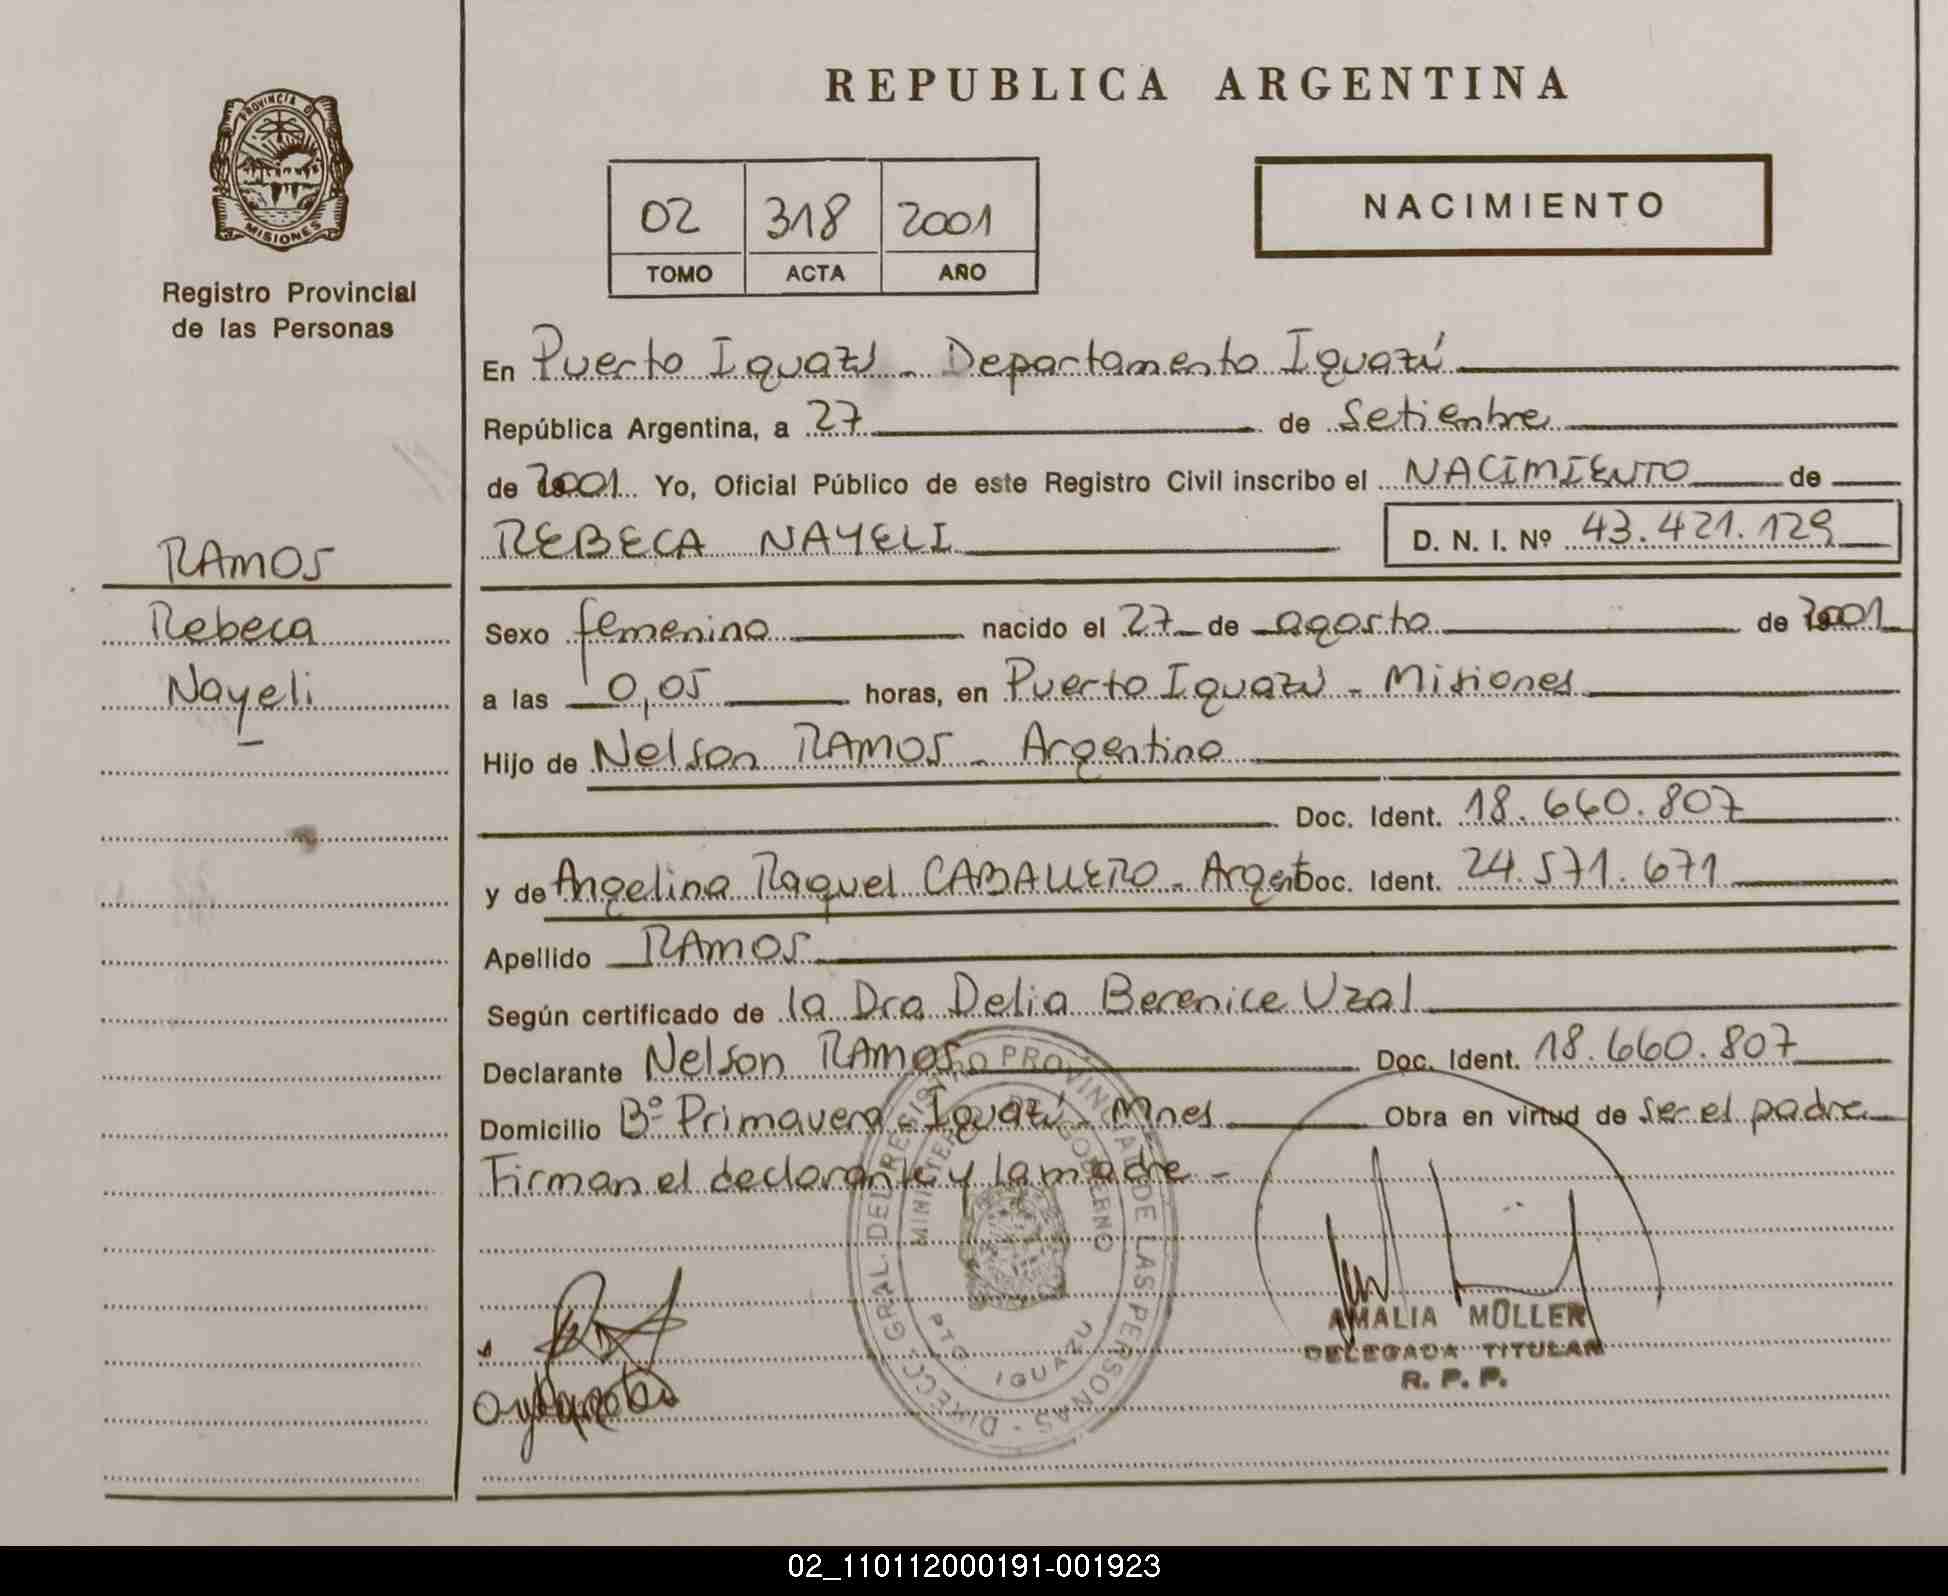 REPUBLICA ARGENTINA
PROVINCIA D
MISIONES
Registro Provincial
de las Personas
02 318 2001
TOMO ACTA AÑO
NACIMIENTO
En Puerto Iguazú - Departamento Iguazú
República Argentina, a 27 de Setienbre
de 2001 Yo, Oficial Público de este Registro Civil inscribo el NACIMIENTO de
REBECA NAYELI D. N. I. Nº 43.421.129
RAMOS
Rebeca
Nayeli
Sexo femenino nacido el 27 de agosto de 2001
a las 0,05 horas, en Puerto Iguazú - Misiones
Hijo de Nelson RAMOS - Argentino
Doc. Ident. 18.660.807
y de Angelina Raquel CABALLERO - Argent Doc. Ident. 24.571.671
Apellido RAMOS
Según certificado de la Dra Delia Berenice Uzal
Declarante Nelson RAMOS Doc. Ident. 18.660.807
Domicilio Bº Primavera - Iguazú - Mnes Obra en virtud de ser el padre
Firman el declarante y la madre -
DIRECC. GRAL. DEL REGISTRO PROVINCIAL DE LAS PERSONAS -
MINISTERIO DE GOBIERNO
PTO. IGUAZU
AMALIA MÜLLER
DELEGADA TITULAR
R. P. P.
02_110112000191-001923